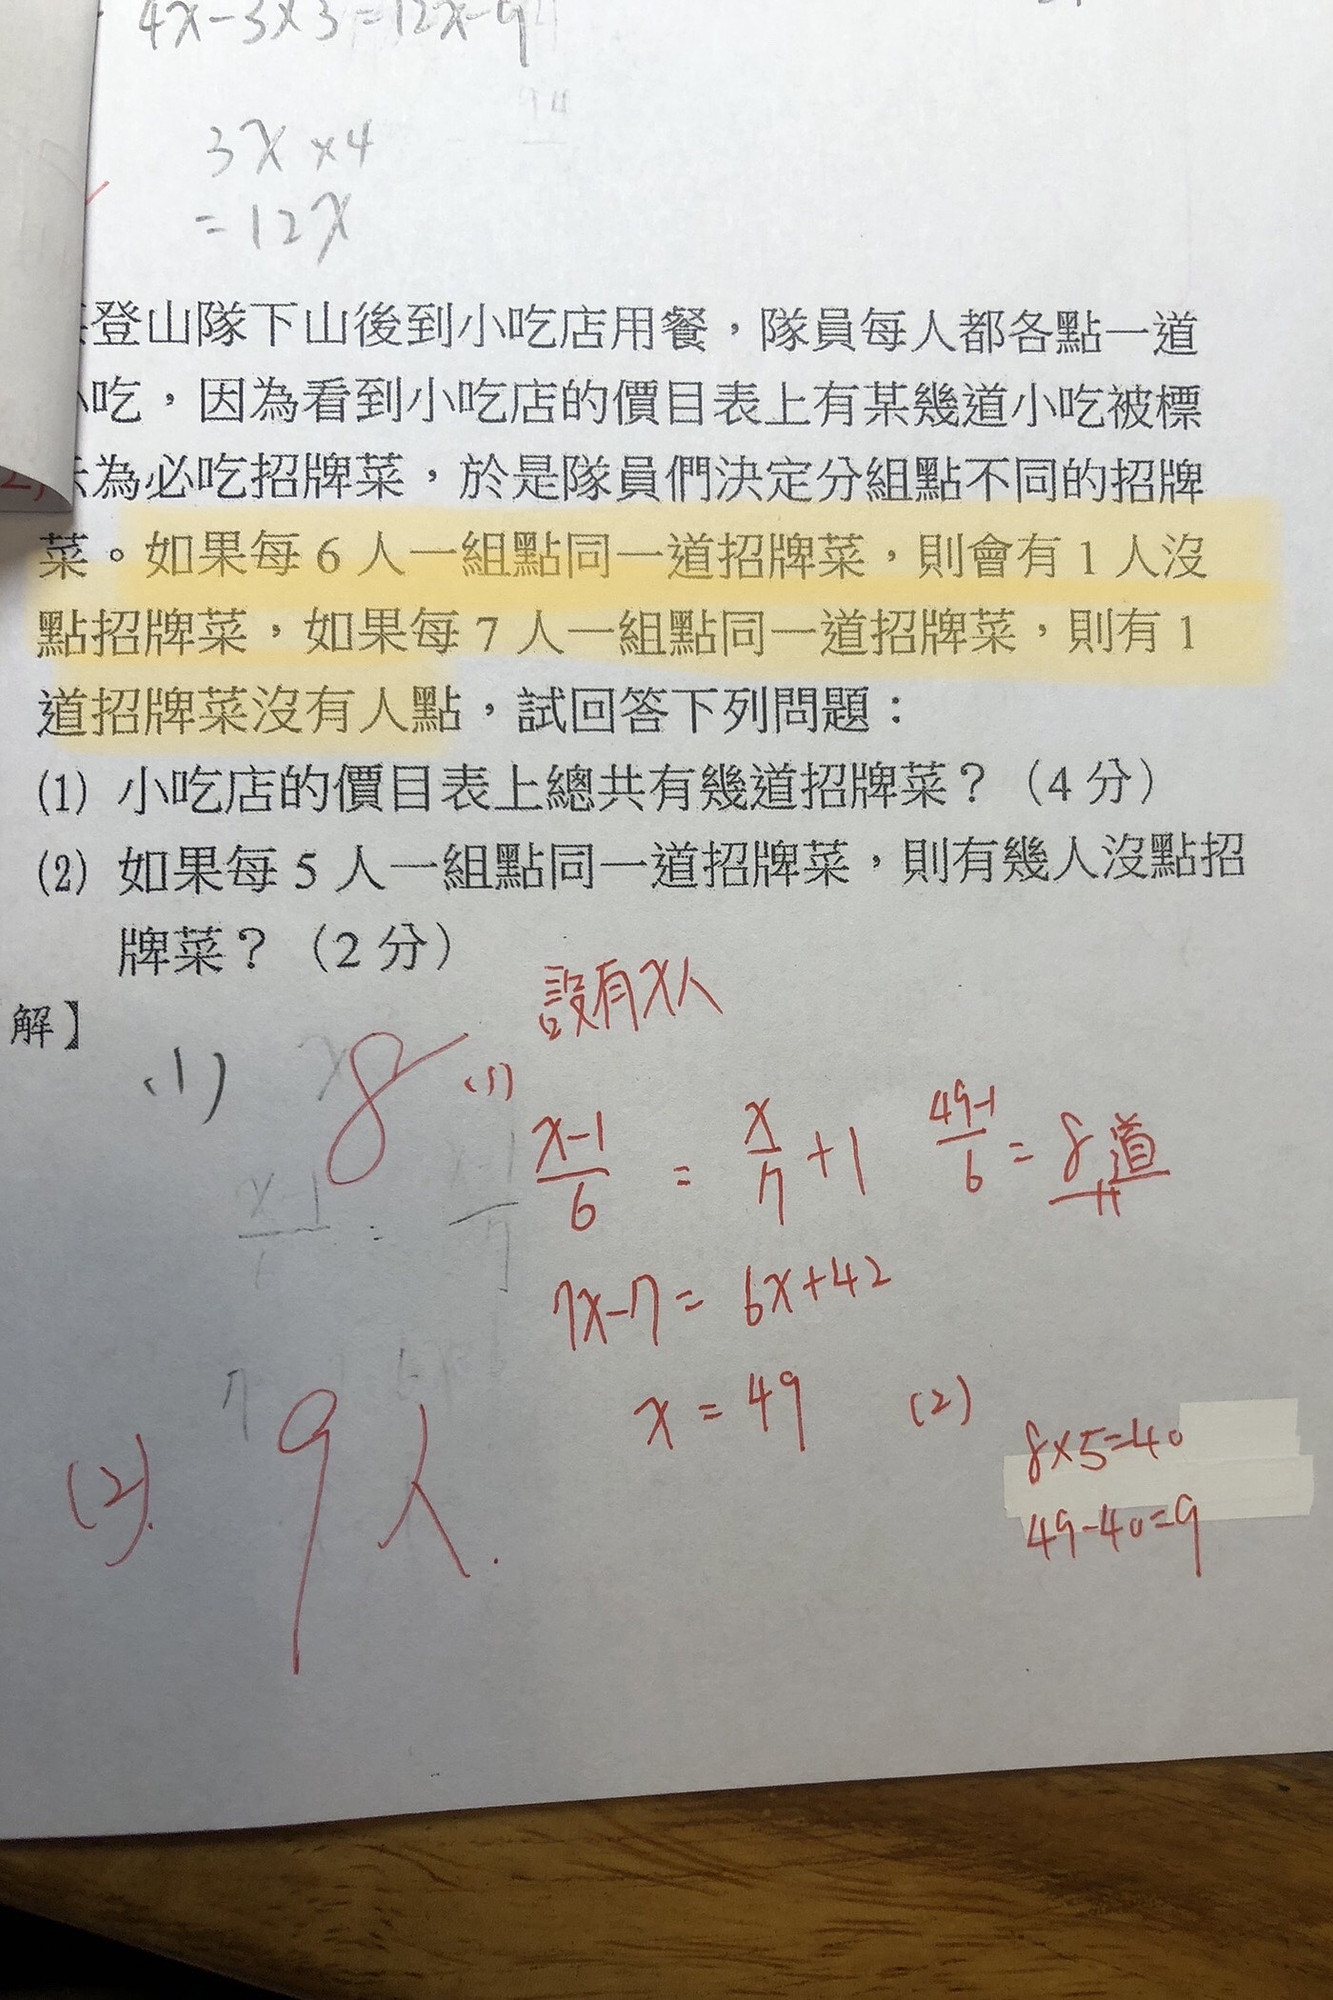 4x-3×3=12x-9
3x×4
=12x
登山隊下山後到小吃店用餐，隊員每人都各點一道
吃，因為看到小吃店的價目表上有某幾道小吃被標
為必吃招牌菜，於是隊員們決定分組點不同的招牌
菜。如果每6人一組點同一道招牌菜，則會有1人沒
點招牌菜，如果每7人一組點同一道招牌菜，則有1
道招牌菜沒有人點，試回答下列問題：
(1) 小吃店的價目表上總共有幾道招牌菜？（4分）
(2) 如果每5人一組點同一道招牌菜，則有幾人沒點招
牌菜？（2分）
解】
設有x人
(1) 8
(1) x-1/6 = x/7 +1 49-1/6 = 8道
7x-7=6x+42
x=49
(2). 9人.
(2) 8×5=40
49-40=9